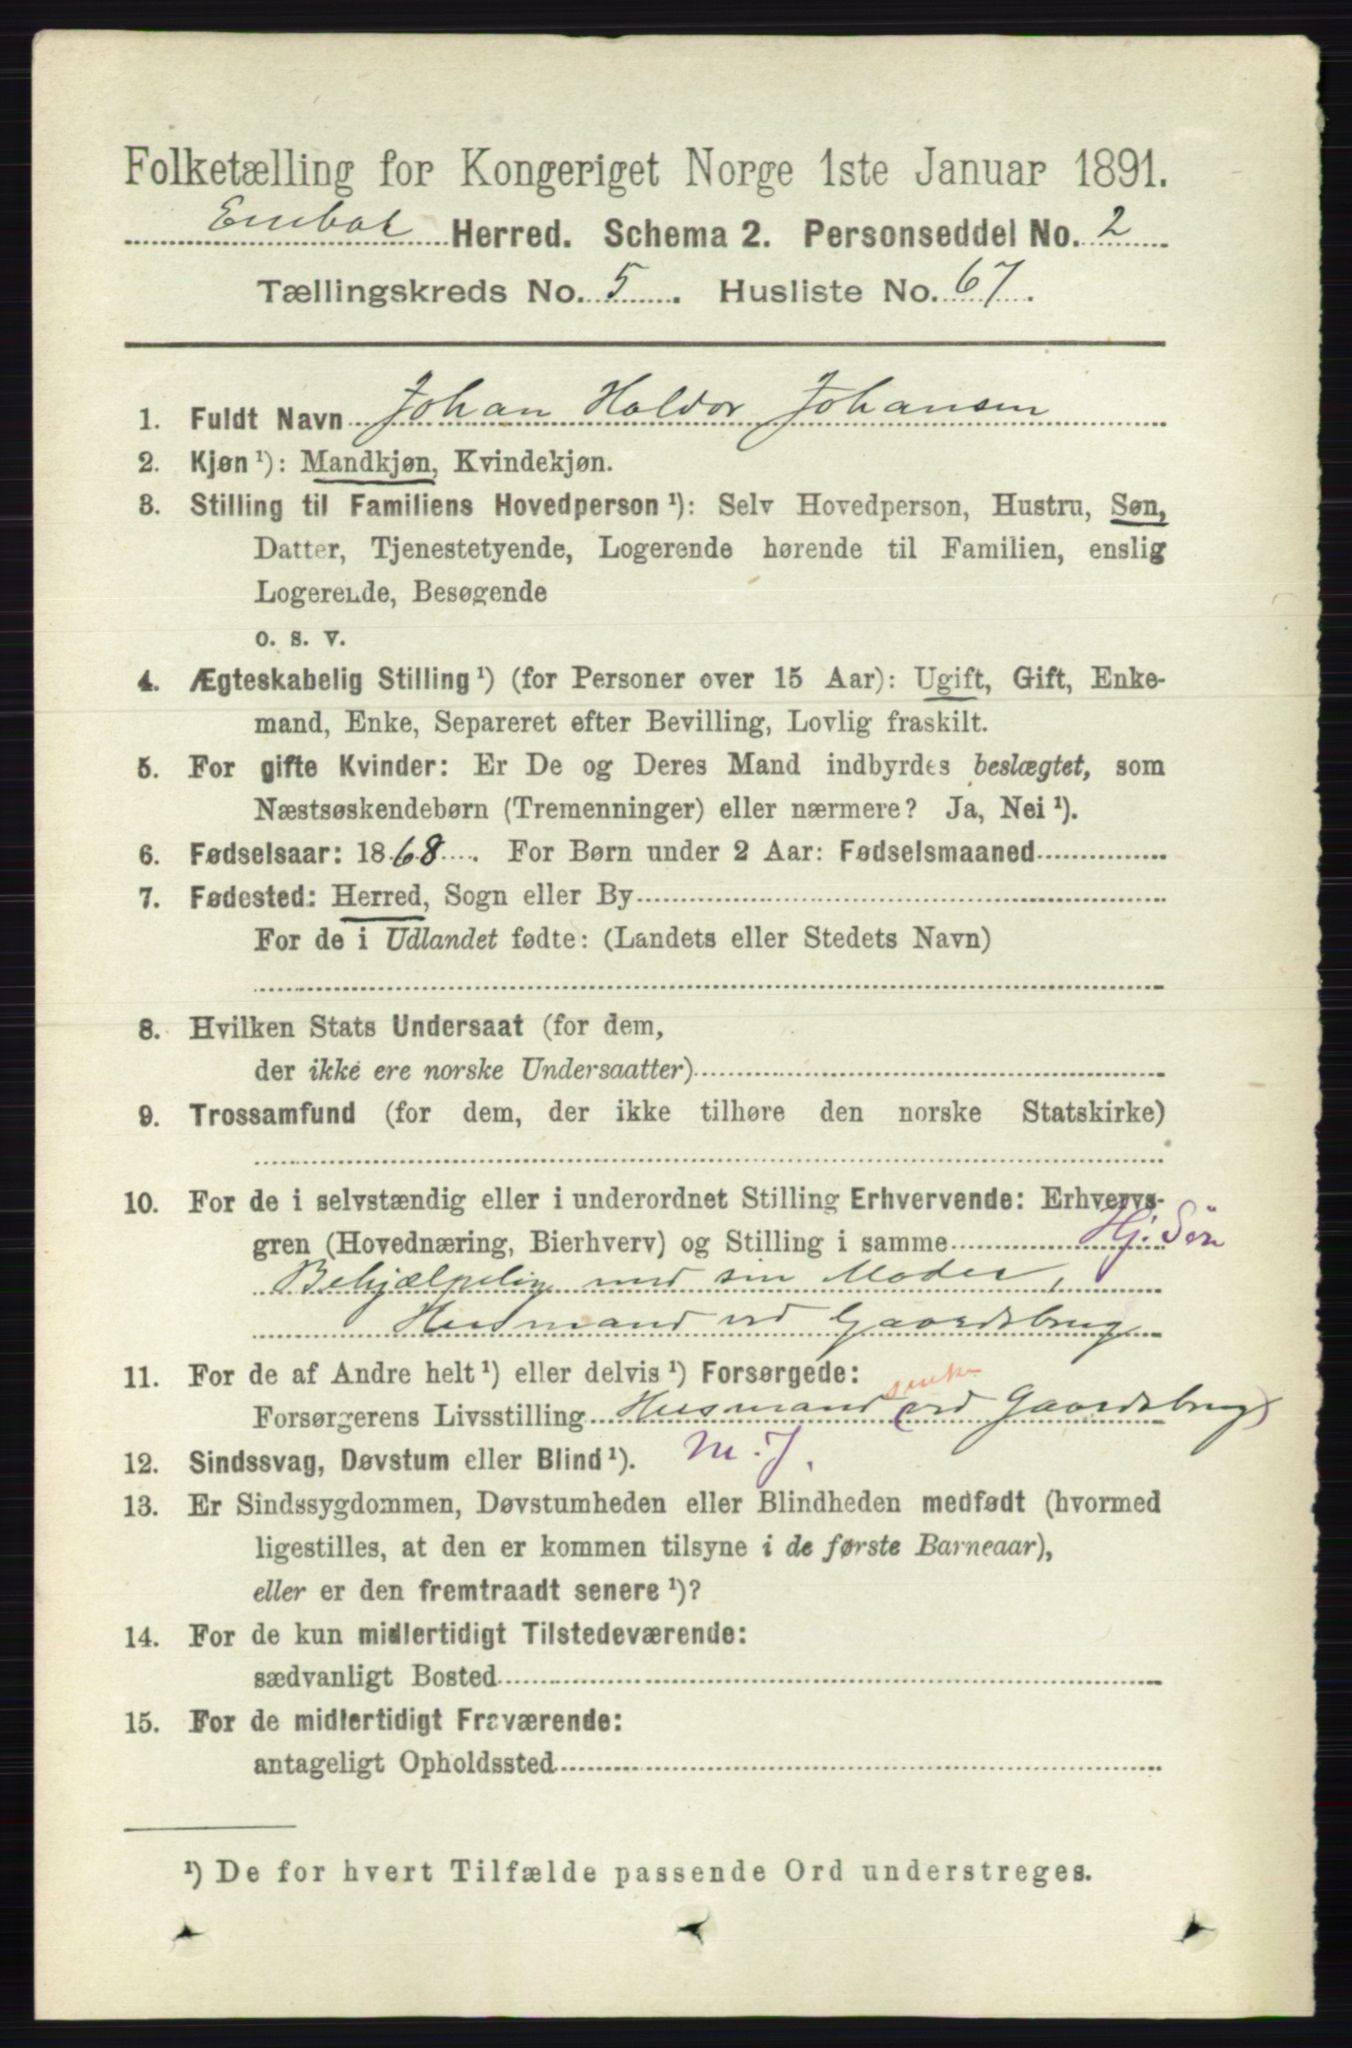 Folketælling for Kongeriget Norge 1ste Januar 1891.
Enebak Herred. Schema 2. Personseddel No. 2
Tællingskreds No. 5. Husliste No. 67.
1. Fuldt Navn Johan Haldor Johansen
2. Kjøn¹): Mandkjøn, Kvindekjøn.
3. Stilling til Familiens Hovedperson¹): Selv Hovedperson, Hustru, Søn,
Datter, Tjenestetyende, Logerende hørende til Familien, enslig
Logerende, Besøgende
o. s. v.
4. Ægteskabelig Stilling¹) (for Personer over 15 Aar): Ugift, Gift, Enke-
mand, Enke, Separeret efter Bevilling, Lovlig fraskilt.
5. For gifte Kvinder: Er De og Deres Mand indbyrdes beslægtet, som
Næstsøskendebørn (Tremenninger) eller nærmere? Ja, Nei¹).
6. Fødselsaar: 1868. For Børn under 2 Aar: Fødselsmaaned
7. Fødested: Herred, Sogn eller By
For de i Udlandet fødte: (Landets eller Stedets Navn)
8. Hvilken Stats Undersaat (for dem,
der ikke ere norske Undersaatter)
9. Trossamfund (for dem, der ikke tilhøre den norske Statskirke)
10. For de i selvstændig eller i underordnet Stilling Erhvervende: Erhvervs-
gren (Hovednæring, Bierhverv) og Stilling i samme Hj. Sön
Behjælpelig med sin Moder,
Husmand ved Gaardsbrug
11. For de af Andre helt¹) eller delvis¹) Forsørgede:
Forsørgerens Livsstilling Husmand (ved Gaardsbrug)
12. Sindssvag, Døvstum eller Blind¹). m. J.
13. Er Sindssygdommen, Døvstumheden eller Blindheden medfødt (hvormed
ligestilles, at den er kommen tilsyne i de første Barneaar),
eller er den fremtraadt senere¹)?
14. For de kun midlertidigt Tilstedeværende:
sædvanligt Bosted
15. For de midlertidigt Fraværende:
antageligt Opholdssted
¹) De for hvert Tilfælde passende Ord understreges.